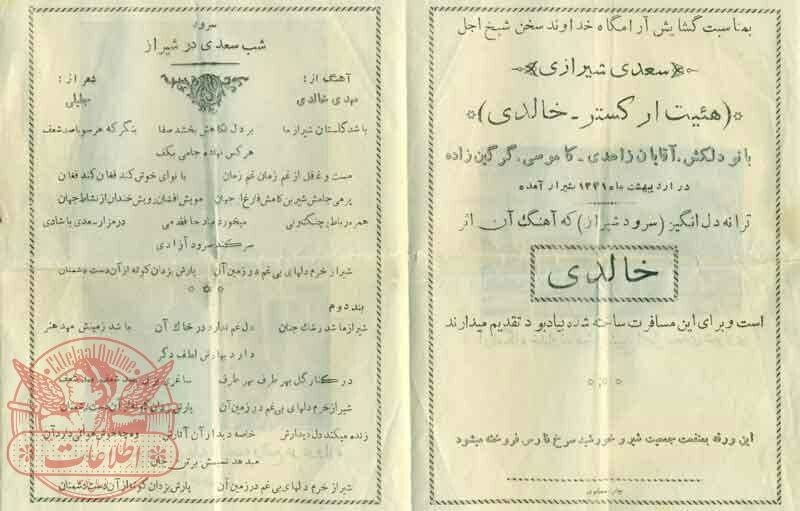 بمناسبت گشایش آرامگاه خداوند سخن شیخ اجل
سعدی شیرازی
(هئیت ارکستر - خالدی)
بانو دلکش، آقایان زاهدی - کاموسی، گرگین زاده
در اردیبهشت ماه ۱۳۳۱ شیراز آمده
ترانه دل انگیز (سرود شیراز) که آهنگ آن اثر
خالدی
است و برای این مسافرت ساخته شده بیادبود تقدیم میدارند
این ورقه بمنفعت جمعیت شیر و خورشید سرخ فارس فروخته میشود
سرود
شب سعدی در شیراز
آهنگ از: شعر از:
مهدی خالدی
باشد گلستان شیراز ما بر دل نگاهش بخشد صفا بنگر که هر سو باصد شعف
هر کس نهاده جامی بکف
مست و غافل از غم زمان غم زمان با نوای خوش کند فغان کند فغان
پر می جامش شیرین کامش فارغ از جهان مویش افشان رویش خندان از نشاط جهان
همره رباط و چنگ و نی میخورد در مزار سعدی با شادی
سر کند سرود آزادی
شیراز خرم دلهای بی غم در زمین آن یارش یزدان کوته از آن دست دشمنان
بند دوم
شیراز ما شد رشک جنان دل غم ندارد در خاک آن باشد زمینش مهد هنر
دارد بهارش لطف دگر
در کنار گل بهر طرف بهر طرف ساغری
شیراز خرم دلهای بی غم در زمین آن یارش یزدان کوته از آن دست دشمنان
زنده میکند دل دیدارش خاصه دیدار آن آثارش
میدهد نسیمش
شیراز خرم دلهای بی غم در زمین آن یارش یزدان کوته از آن دست دشمنان
EttelaatOnline
اطلاعات